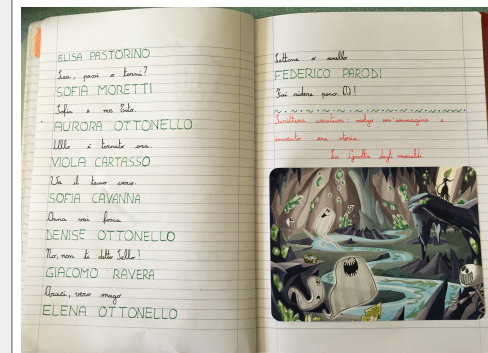 ELISA PASTORINO
Lea, passi e torni?
SOFIA MORETTI
e ma
AURORA OTTONELLO
è tornato ora.
VIOLA CARTASSO
Va il tasso
SOFIA CAVANNA
Anna vai
DENISE OTTONELLO
No, non ti detto Sello!
GIACOMO RAVERA
Grazi, vero mago
ELENA OTTONELLO
Lettone o anello
FEDERICO PARODI
Fai ridere poco :D !
Scrittura creativa: scelgo un'immagine e
invento una storia.
La Grotta degli smeraldi